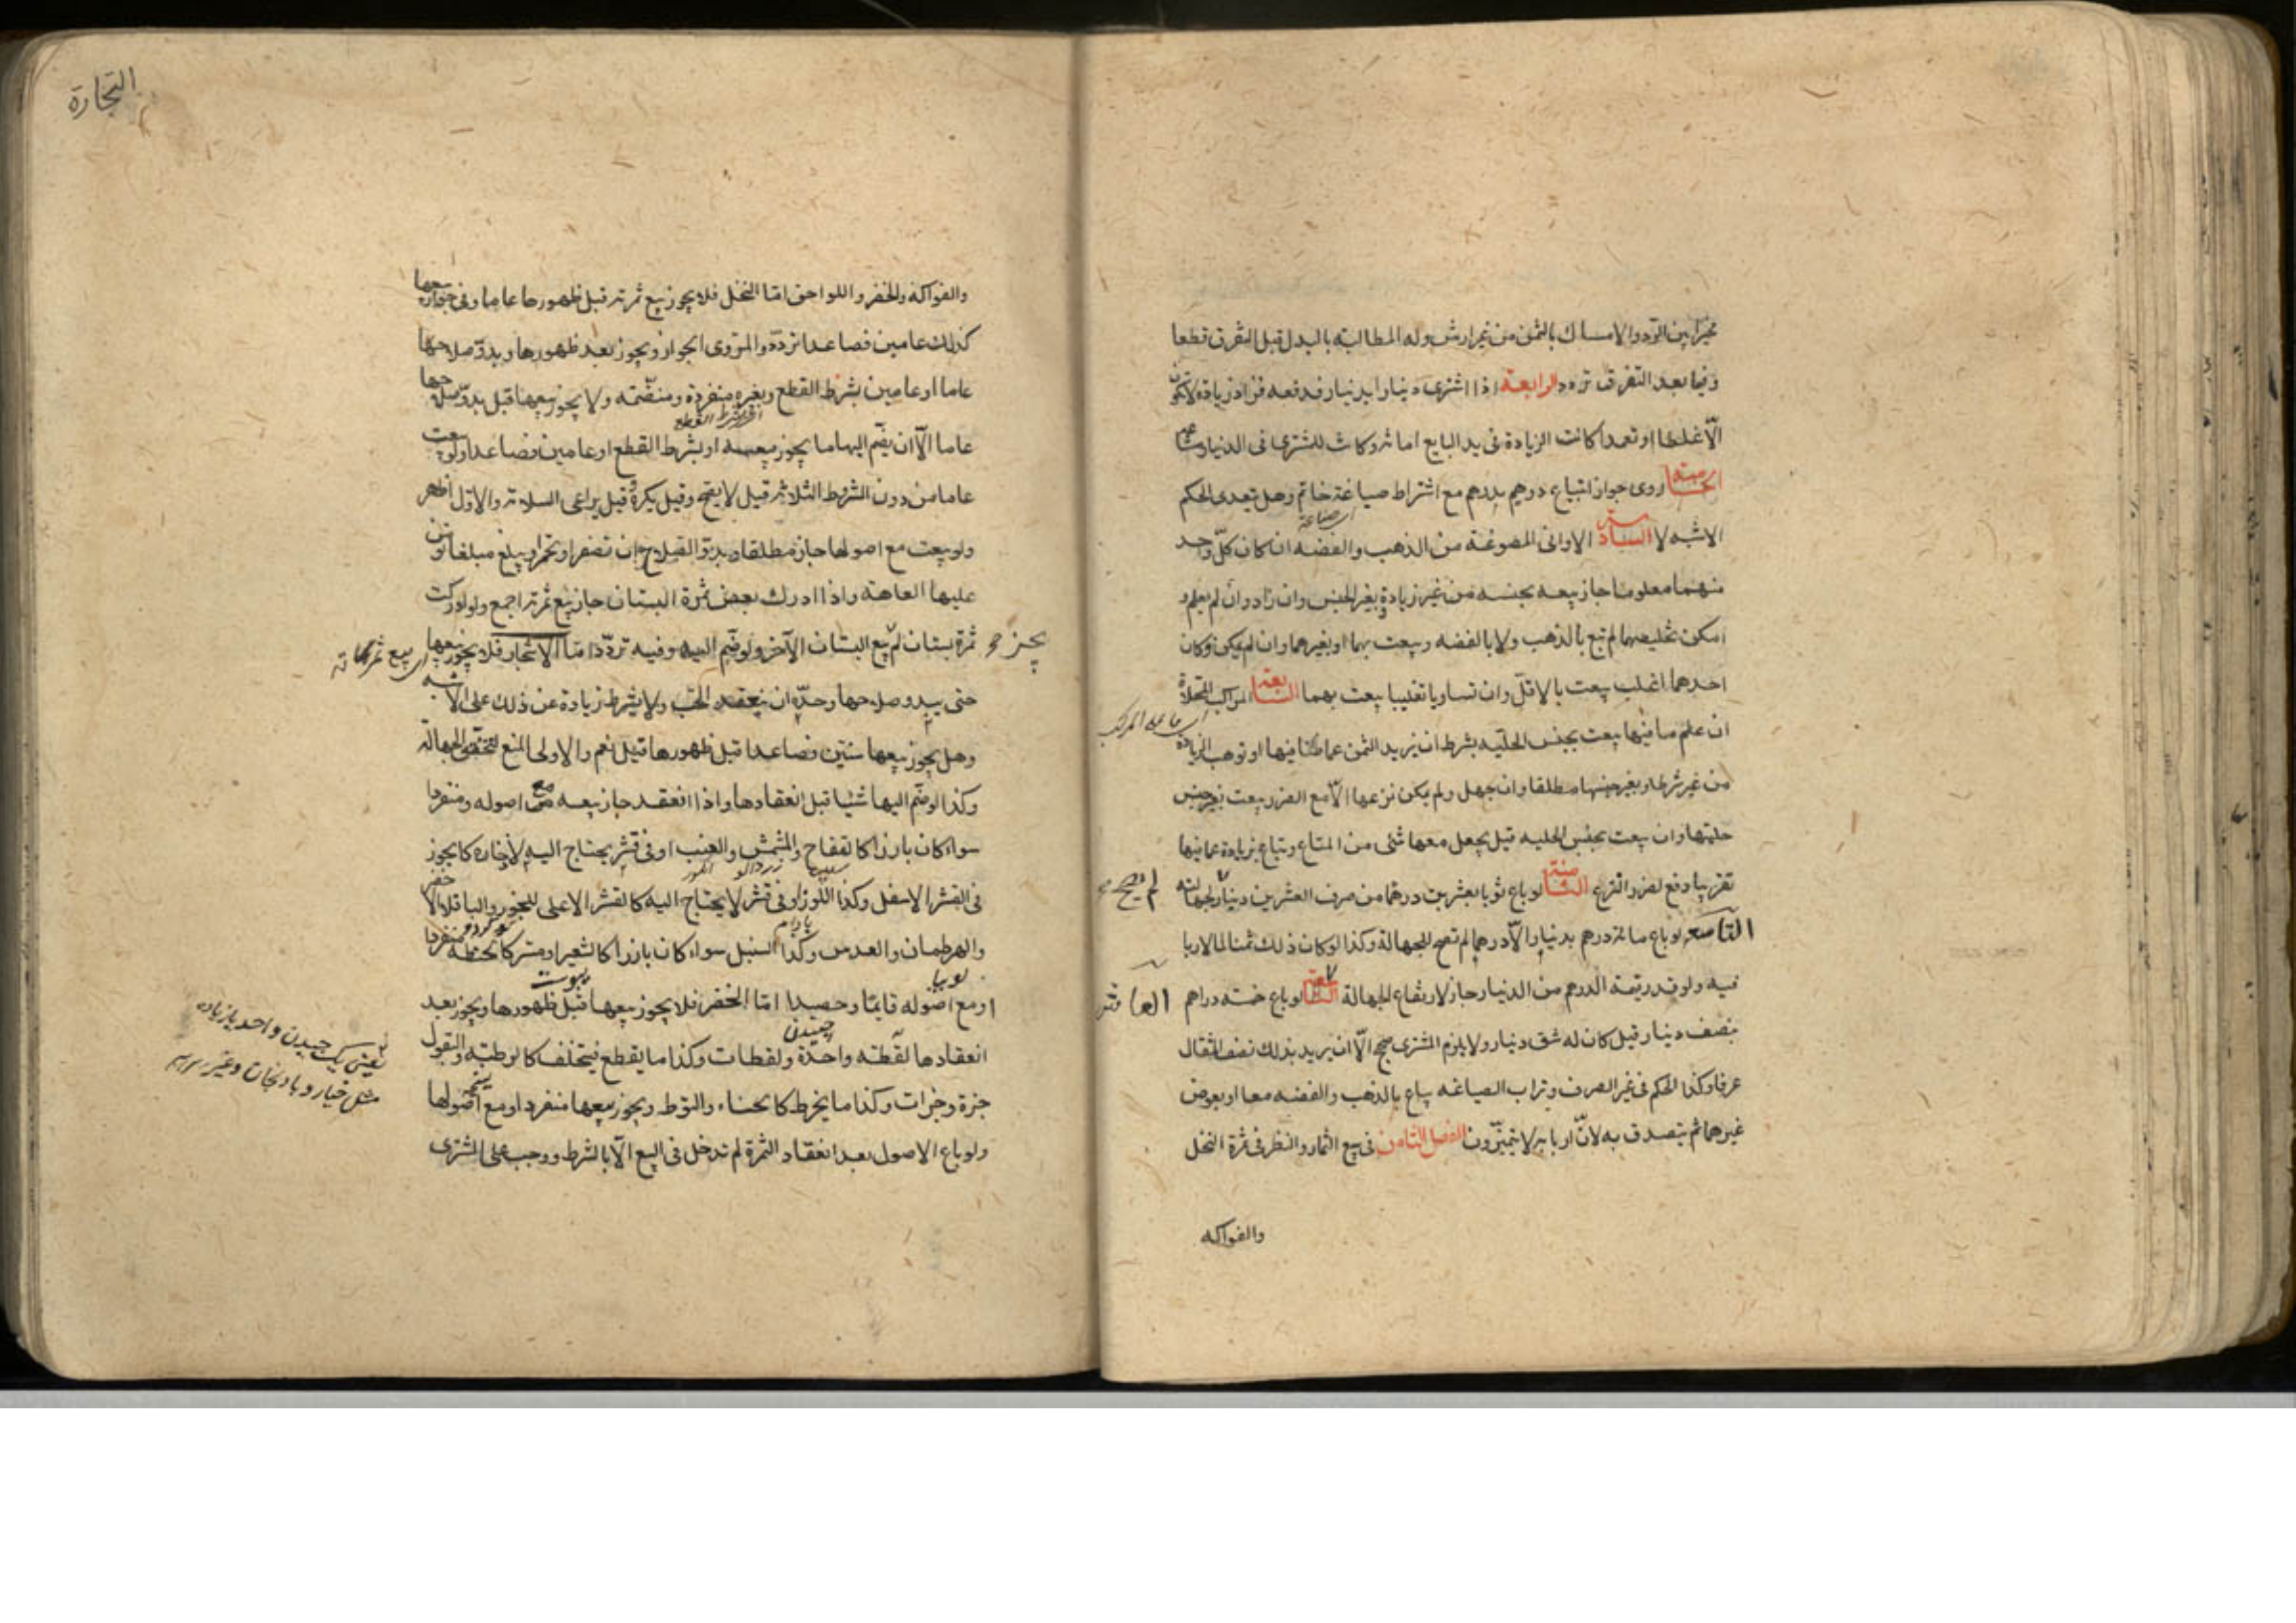 مخيرا بين الرد والامساك بالثمن من غير ارش وله المطالبة بالبدل قبل التفرق قطعا
وفيما بعد التفرق تردد الرابعة اذا اشترى دينارا بدينار فدفعه فزاد زيادة لا تكون
الّا غلطا او تعمدا كانت الزيادة في يد البايع امانة وكانت للمشترى في الدينار مشاعة
الخامسة روى جواز ابتياع درهم بدرهم مع اشتراط صياغة خاتم وهل يتعدى الحكم
الاشبه لا السادسة الاواني المصوغة من الذهب والفضه ان كان كلّ واحد
منهما معلوما جاز بيعه بجنسه من غير زيادة وبغير الجنس وان زاد وان لم يعلم و
امكن تخليصهما لم تبع بالذهب ولا بالفضه وبيعت بهما او بغيرهما وان لم يمكن وكان
احدهما اغلب بيعت بالاقلّ وان تساويا تغليبا بيعت بهما السابعة المراكب المحلاة
ان علم ما فيها بيعت بجنس الحليه بشرط ان يزيد الثمن عما فيها او توهب الزيادة
من غير شرط وبغير جنسها مطلقا وان جهل ولم يمكن نزعها الّا مع الضرر بيعت بغير جنس
حليتها وان بيعت بجنس الحليه قيل يجعل معها شئ من المتاع وتباع بزيادة عما فيها
تقريبا دفع لضرر النزع الثامنة لو باع ثوبا بعشرين درهما من صرف العشرين دينار لجهالته
لم يصح
التاسعه لو باع مائة درهم بدينار الّا درهما لم تصح للجهالة وكذا لو كان ذلك ثمنا لما لا ربا
فيه ولو قدر قيمة الدرهم من الدينار جاز لارتفاع الجهالة لو باع خمسة دراهم
العاشر
بنصف دينار قيل كان له شق دينار ولا يلزم المشترى صحيح الّا ان يريد بذلك نصف المثقال
عرفا وكذا الحكم في غير الصرف وتراب الصياغه يباع بالذهب والفضه معا او بعوض
غيرهما ثم يتصدق به لانّ اربابه لا يتميّزون الفصل الثامن في بيع الثمار والنظر في ثمرة النخل
والفواكه
التجارة
والفواكه والخضر واللواحق امّا النخل فلا يجوز بيع ثمرته قبل ظهورها عاما وفي جواز بيعها
كذلك عامين فصاعدا تردّد والمروى الجواز ويجوز بعد ظهورها وبدوّ صلاحها
عاما او عامين بشرط القطع وبغيره منفردة ومنضمّة ولا يجوز بيعها قبل بدوّ صلاحها
عاما الّا ان يضّم اليها ما يجوز بيعه او بشرط القطع او عامين فصاعدا ولو بيعت
عاما من دون الشروط الثلاثة قيل لا يصح وقيل يكره وقيل يراعى السلامة والاوّل اظهر
ولو بيعت مع اصولها جاز مطلقا وبدوّ الصلاح ان تصفر او تحمر او يبلغ مبلغا يؤمن
عليها العاهة واذا ادرك بعض ثمرة البستان جاز بيع ثمرته اجمع ولو ادركت
ثمرة بستان لم يبع البستان الآخر ولو ضّم اليه وفيه تردّد امّا الاشجار فلا يجوز بيعها
حتى يبدو صلاحها وحدّه ان ينعقد الحب ولا يشرط زيادة عن ذلك على الاشبه
وهل يجوز بيعها سنتين فصاعدا قبل ظهورها قيل نعم والاولى المنع لتحقق الجهالة
وكذا لو ضّم اليها شيئا قبل انعقادها واذا انعقد جاز بيعه مع اصوله ومنفردا
سواء كان بارزا كالتفاح والمشمش والعنب او في قشر يحتاج اليه لادخاره كالجوز
سيب زردالو انگور
في القشر الاسفل وكذا اللوز او في قشر لا يحتاج اليه كالقشر الاعلى للجوز والباقلا الاخضر
بادام
والهرطمان والعدس وكذا السنبل سواء كان بارزا كالشعير او مستترا كالحنطة منفردا
او مع اصوله قايما وحصيدا امّا الخضر فلا يجوز بيعها قبل ظهورها ويجوز بعد
انعقادها لقطة واحدة ولقطات وكذا ما يقطع فيتخلف كالرطبة والبقول
چيدن
يعني يك چيدن واحد يا زياده
مثل خيار و بادنجان و غير
جزة وجزات وكذا ما يخرط كالحناء والتوت ويجوز بيعها منفردا ومع اصولها
ولو باع الاصول بعد انعقاد الثمرة لم تدخل في البيع الّا بالشرط ووجب على المشترى